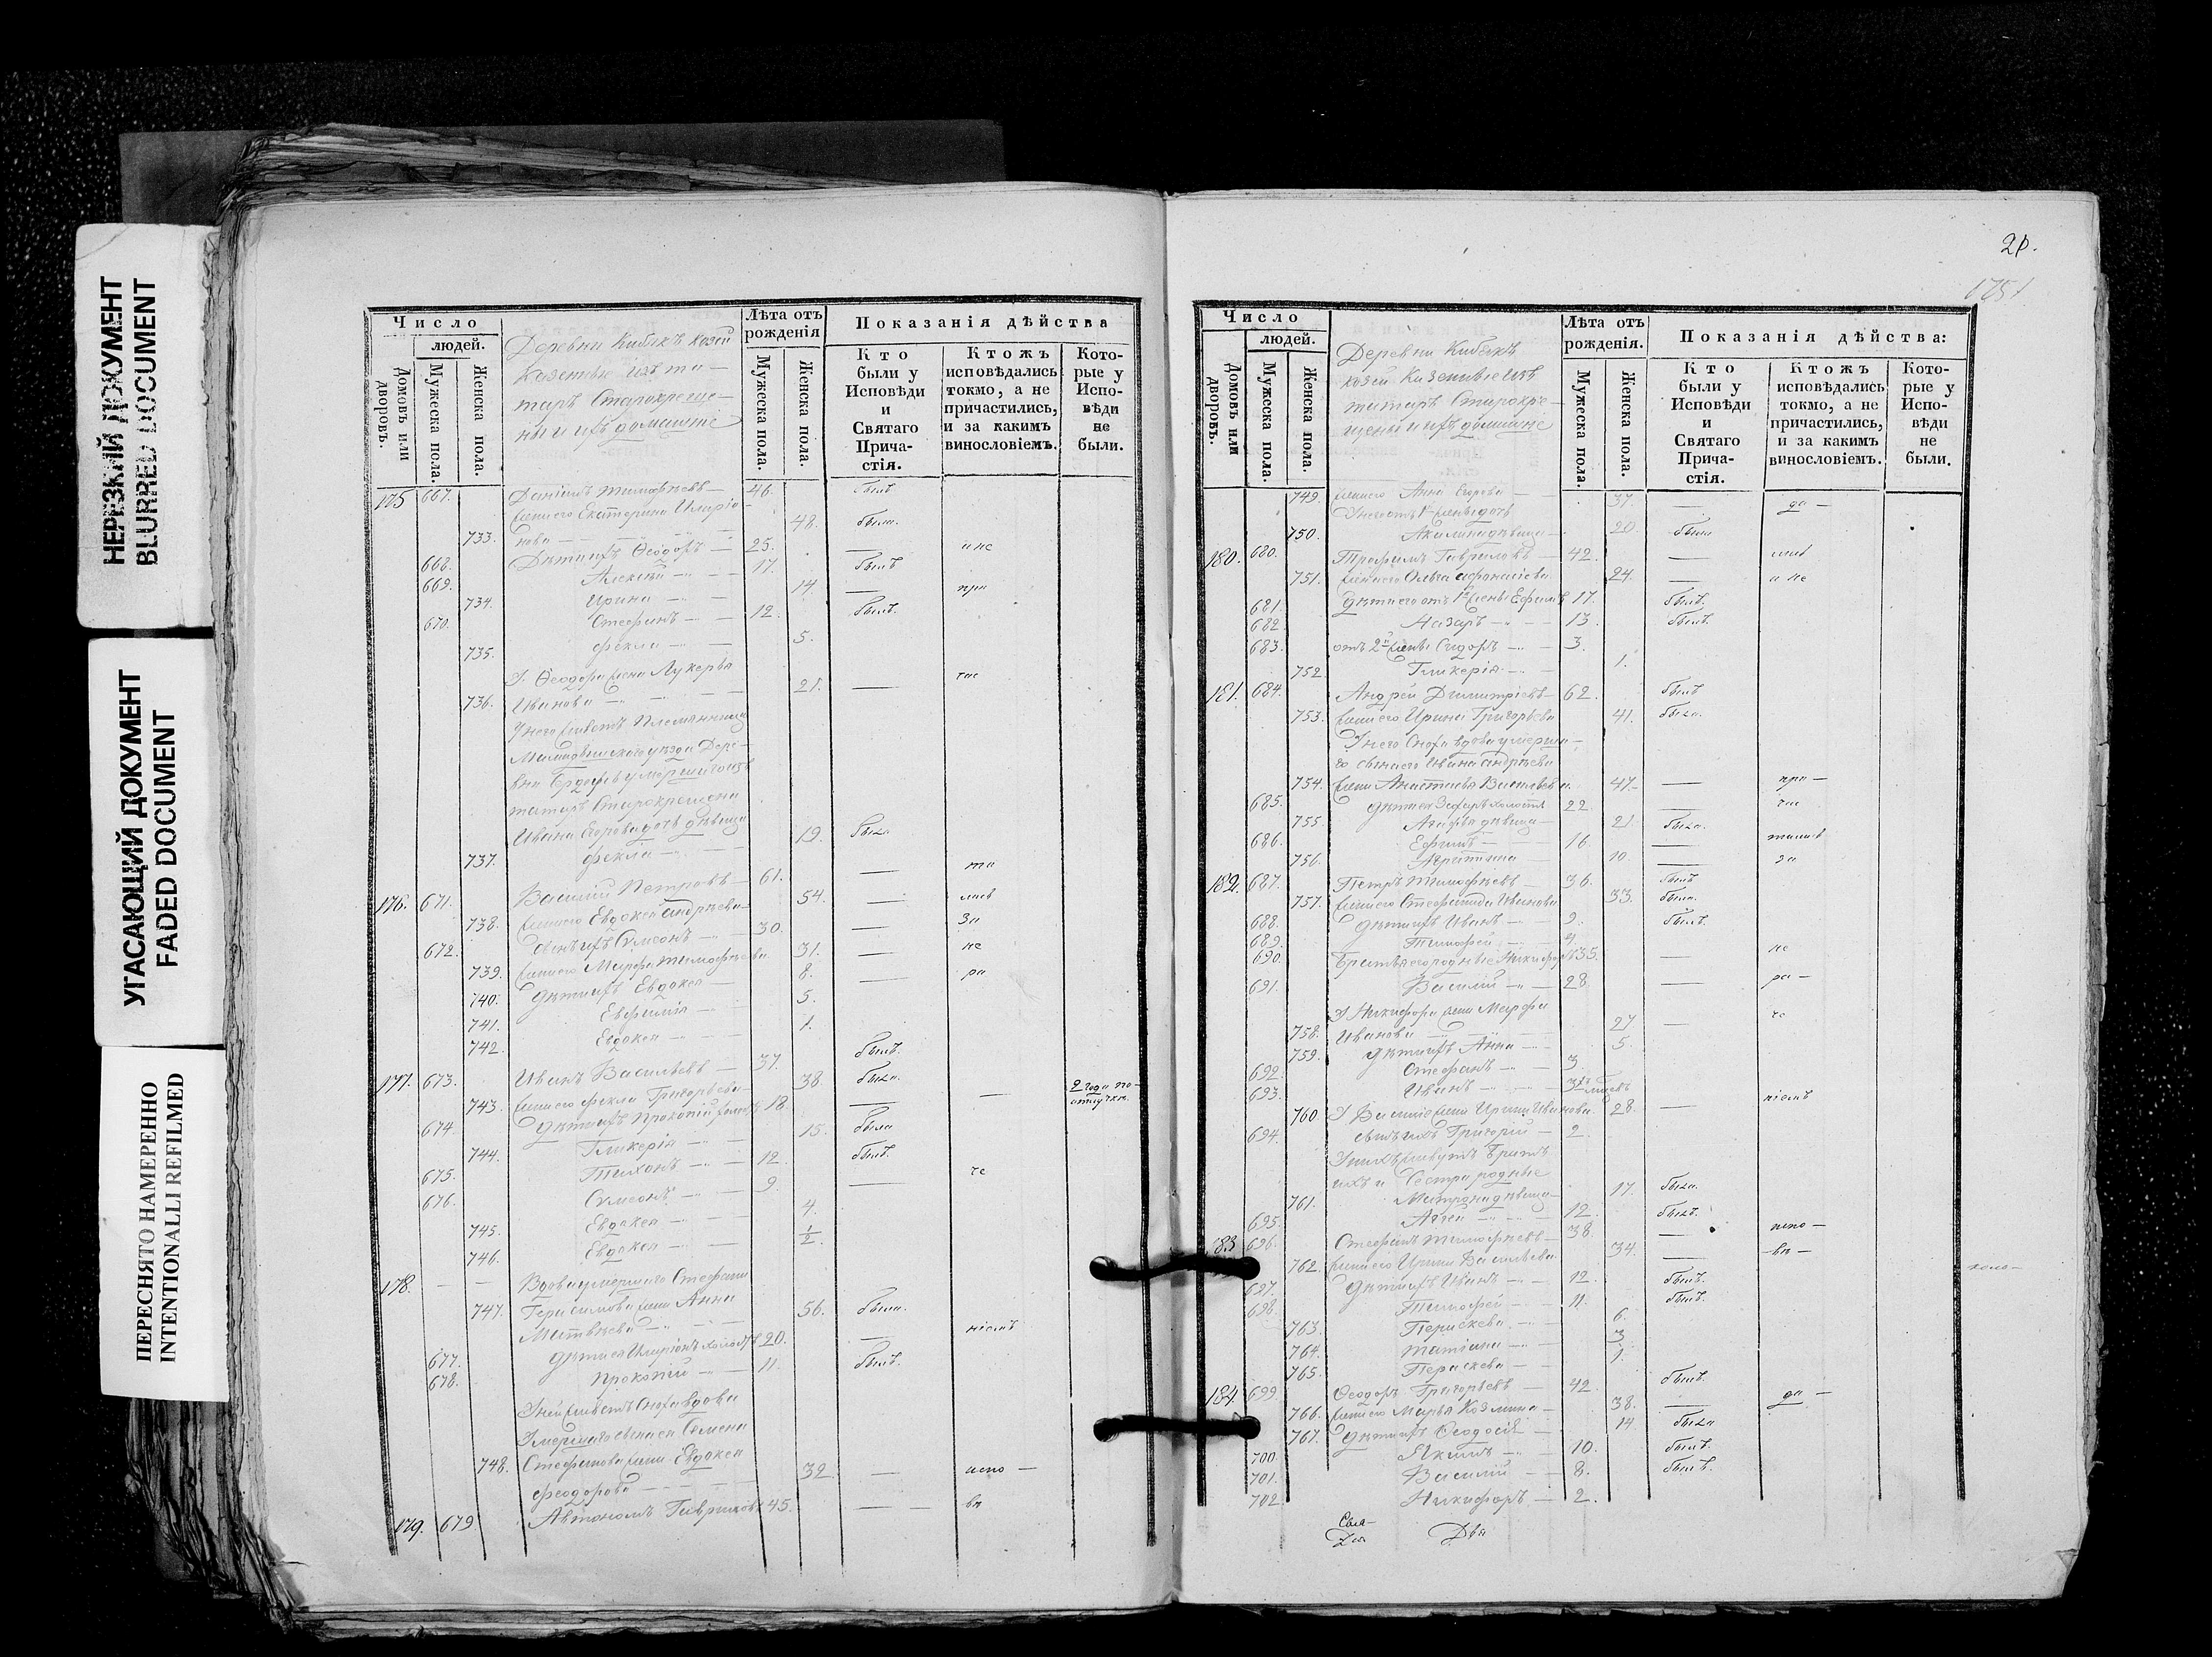 НЕРЕЗКИЙ ДОКУМЕНТ
BLURRED DOCUMENT
УГАСАЮЩИЙ ДОКУМЕНТ
FADED DOCUMENT
ПЕРЕСНЯТО НАМЕРЕННО
INTENTIONALLI REFILMED
Число
людей.
Домовъ или дворовъ.
Мужеска пола.
Женска пола.
Лѣта отъ рожденія
Мужеска пола.
Женска пола.
Показанія дѣйства
Кто были у Исповѣди и Святаго Причастія.
Ктожъ исповѣдались токмо, а не причастились, и за какимъ винословіемъ.
Которые у Исповѣди не были.
175 667. Даніилъ Тимофѣевъ — 46. былъ
Жена его Екатерина Иларіо-
733. нова — 48. была.
668. Дѣти ихъ Ѳеодоръ — 25. — и не
669. Алексѣй — 17. былъ
734. Ирина — 14. — при
670. Стефанъ — 12. былъ.
735. Фекла — 5.
У Ѳеодора жена Лукерья
736. Иванова — 21. — час
У него живетъ племянница
Мамадышского уѣзда Дере-
вни умершаго изъ
татаръ Старокрещена
Ивана Егорова дочь дѣвица
737. Фекла — 19. была
176. 671. Василій Петровъ — 61. — та
738. Жена его Евдокея Андрѣева — 54. — лив
672. Сынъ ихъ Сумеонъ — 30. — За
739. Жена его Марфа Тимофѣева 31. — не
740. Дѣти ихъ Евдокея — 8. — ра
741. Евфимія — 5.
742. Евдокея — 1.
177. 673. Иванъ Васильевъ — 37. былъ.
743. Жена его Фекла Григорьева — 38. была.
674. Дѣти ихъ Прокопій 18. — — 2 года по отлучкѣ.
744. Гликерія — 15. была
675. Тихонъ — 12. былъ.
676. Сумеонъ — 9. — че
745. Евдокея — 4.
746. Евдокея — 1/2.
178. — — Вдова умершаго Стефана
747. Герасимова жена Анна
Матвѣева — 56. была.
677. Дѣти ея Иларіонъ холостъ 20. — ніемъ
678. Прокопій — 11. былъ.
У ней живетъ Сноха вдова
Умершаго сына ея Семена
748. Стефанова жена Евдокея
Феодорова — 32 — испо —
179. 679 Автономъ Гавриловъ 45. — — вѣ
21.
1751
Число
людей.
Домовъ или дворовъ.
Мужеска пола.
Женска пола.
Лѣта отъ рожденія.
Мужеска пола.
Женска пола.
Показанія дѣйства:
Кто были у Исповѣди и Святаго Причастія.
Ктожъ исповѣдались токмо, а не причастились, и за какимъ винословіемъ.
Которые у Исповѣди не были.
749. Жена его Анна Егорова — 37. — да —
У него отъ 1й жены дочь
750. Акилина дѣвица — 20 была
180. 680. Трофимъ Гавриловъ — 42. — лив
751. Жена его Ольга Афонасіева 24. — и не
681. Дѣти его отъ 1й жены Ефимъ 17. былъ.
682. Назаръ — 13. былъ.
683. отъ 2й жены Сидоръ — 3.
752 Гликерія — 1.
181. 684. Андрей Димитріевъ — 62. былъ
753. Жена его Ирина Григорьева 41. была.
У него Сноха вдова умерша-
го сына его Ивана Андрѣева
754. жена Анастасья Васильева. 47. — при —
685. Дѣти ея Захаръ холостъ 22. — час
755. Агафья дѣвица — 21 была.
686. Ефимъ — 16. — талив
756. — 10. — за
182. 687. Петръ Тимофѣевъ — 36. былъ
757. Жена его Стефанида Иванова 33. была.
688. Дѣти ихъ Иванъ — 9. былъ.
689. Тимофей — 4.
690. Братья его родные Никифоръ 35. — не
691. Василій — 28 — ра —
У Никифора жена Марфа
758. Иванова — 27 — че
759. Дѣти ихъ Анна — 5.
692. Стефанъ — 3.
693. Иванъ —
760 У Василія жена Ирина Иванова 28. — ніемъ
694. сынъ ихъ Григорій — 2.
У нихъ живутъ Братъ
ихъ и Сестра родные
761. Матрона дѣвица — 17. была.
695. — 12. былъ.
183 696. Стефанъ Тимофѣевъ — 38. — испо —
762. Жена его Ирина Васильева 34. — вѣ —
697. Дѣти ихъ Иванъ — 12. былъ.
698. Тимофей — 11. былъ.
763. Параскева — 6.
764. Татіана — 3.
765. Параскева — 1.
184. 699. Ѳеодоръ Григорьевъ — 42. былъ.
766. Жена его Марья Козмина — 38. — да —
767. Дѣти ихъ Ѳеодосія — 14 была
700. Якимъ — 10. былъ.
701. Василій — 8. былъ.
702. Никифоръ — 2.